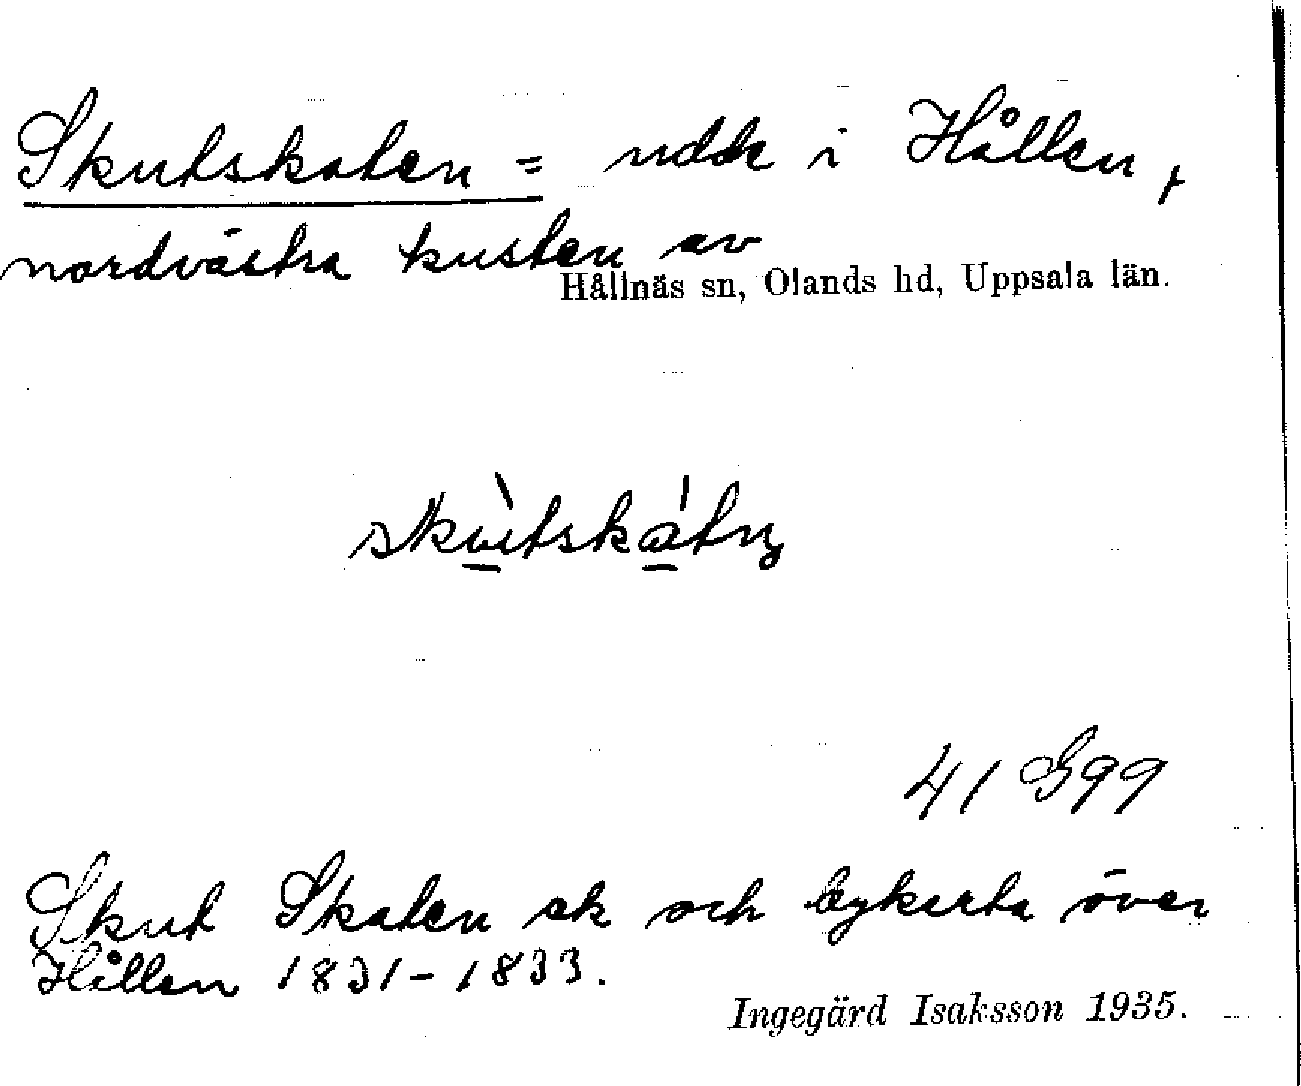 Skutskaten = udde i Hållen,
nordvästra kusten av
Hållnäs sn, Olands hd, Uppsala län.
skùtskátn̥
41 G 99
Skut Skaten ek och bykarta över
Hållen 1831-1833.
Ingegärd Isaksson 1935.